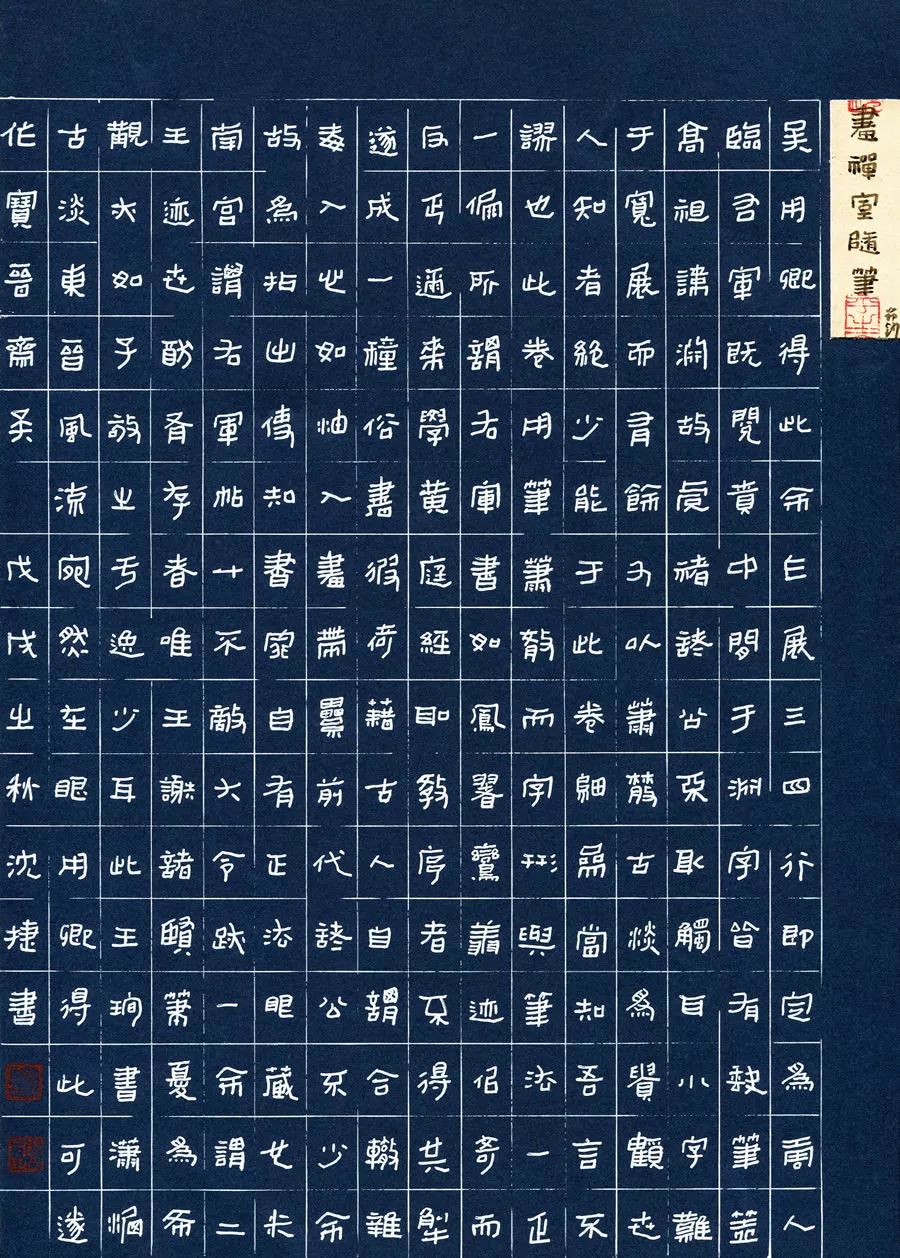 畫禪室隨筆
節錄
吴用卿得此余乍展三四行即定為唐人
臨右軍既閱竟中間于淵字皆有缺筆蓋
高祖諱淵故虞褚諸公不敢觸耳小字難
于寬展而有餘又以蕭散古淡為貴顧世
人知者絕少能于此卷細參當知吾言不
謬也此卷用筆蕭散而字形與筆法一正
一偏所謂右軍書如鳳翥鸞翔迹似奇而
反正邇來學黃庭經聖教序者不得其解
遂成一種俗書彼荷藉古人自謂合轍雜
毒入心如油入畫帶纍前代諸公不少余
故為拈出使知書家自有正法眼藏也米
南宮謂右軍帖十不敵大令跡一余謂二
王迹世猶有存者唯王謝諸賢筆憂為希
觀大如子敬之于逸少耳此王珣書瀟灑
古淡東晉風流宛然在眼用卿得此可遂
作寶晉齋矣
戊戌之秋沈捷書